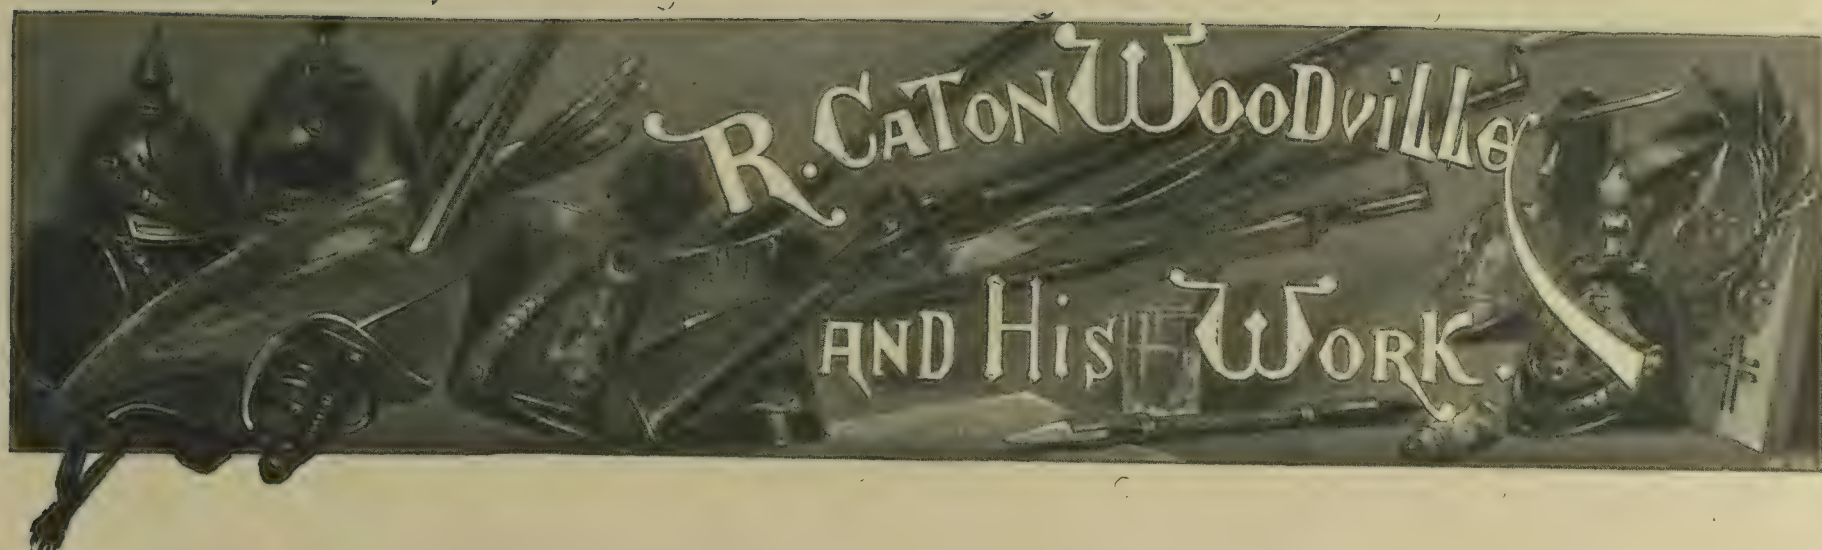 R. CATON WOODVILLE
AND HIS WORK.